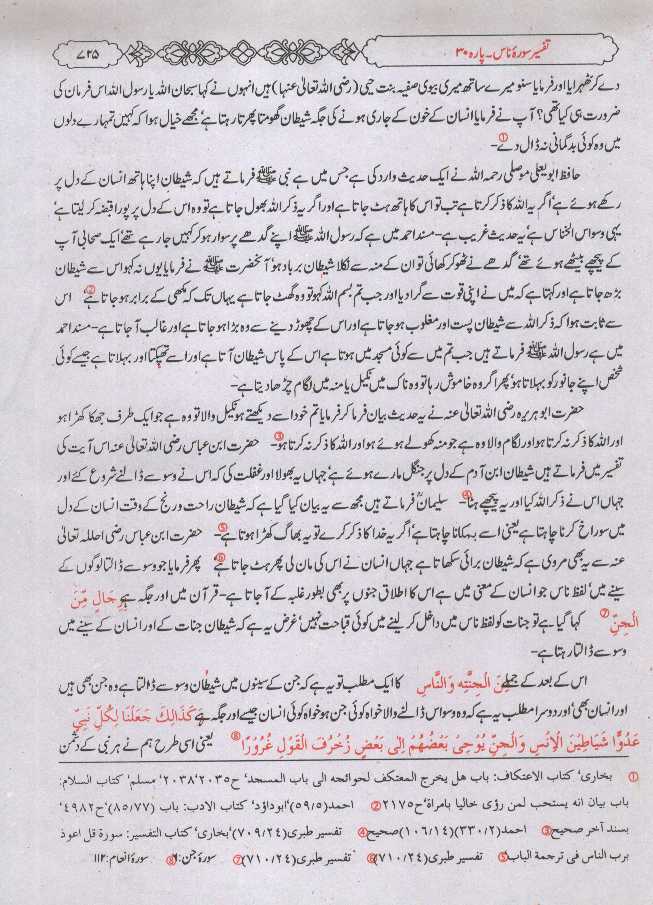 تفسیر سورۂ ناس۔ پارہ ۳۰
۷۲۵
دے کر ٹھہرایا اور فرمایا سنو میرے ساتھ میری بیوی صفیہ بنت حیی (رضی اللہ تعالیٰ عنہا) ہیں انہوں نے کہا سبحان اللہ یا رسول اللہ اس فرمان کی
ضرورت ہی کیا تھی؟ آپ نے فرمایا انسان کے خون کے جاری ہونے کی جگہ شیطان گھومتا پھرتا رہتا ہے‘ مجھے خیال ہوا کہ کہیں تمہارے دلوں
میں وہ کوئی بدگمانی نہ ڈال دے ①-
حافظ ابو یعلی موصلی رحمہ اللہ نے ایک حدیث وارد کی ہے جس میں ہے نبی ﷺ فرماتے ہیں کہ شیطان اپنا ہاتھ انسان کے دل پر
رکھے ہوئے ہے‘ اگر یہ اللہ کا ذکر کرتا ہے تب تو اس کا ہاتھ ہٹ جاتا ہے اور اگر یہ ذکر اللہ بھول جاتا ہے تو وہ اس کے دل پر پورا قبضہ کر لیتا ہے‘
یہی وسواس الخناس ہے‘ یہ حدیث غریب ہے- مسند احمد میں ہے کہ رسول اللہ ﷺ اپنے گدھے پر سوار ہو کر کہیں جا رہے تھے‘ ایک صحابی آپ
کے پیچھے بیٹھے ہوئے تھے‘ گدھے نے ٹھوکر کھائی تو ان کے منہ سے نکلا شیطان برباد ہو‘ آنحضرت ﷺ نے فرمایا یوں نہ کہو اس سے شیطان
بڑھ جاتا ہے اور کہتا ہے کہ میں نے اپنی قوت سے گرا دیا اور جب تم بسم اللہ کہو تو وہ گھٹ جاتا ہے یہاں تک کہ مکھی کے برابر ہو جاتا ہے ② اس
سے ثابت ہوا کہ ذکر اللہ سے شیطان پست اور مغلوب ہو جاتا ہے اور اس کے چھوڑ دینے سے وہ بڑا ہو جاتا ہے اور غالب آ جاتا ہے- مسند احمد
میں ہے رسول اللہ ﷺ فرماتے ہیں جب تم میں سے کوئی مسجد میں ہوتا ہے اس کے پاس شیطان آتا ہے اور اسے تھپکتا اور بہلاتا ہے جیسے کوئی
شخص اپنے جانور کو بہلاتا ہو‘ پھر اگر وہ خاموش رہا تو وہ ناک میں نکیل یا منہ میں لگام چڑھا دیتا ہے-
حضرت ابو ہریرہ رضی اللہ تعالیٰ عنہ نے یہ حدیث بیان فرما کر فرمایا تم خود اسے دیکھتے ہو نکیل والا تو وہ ہے جو ایک طرف جھکا کھڑا ہو
اور اللہ کا ذکر نہ کرتا ہو اور لگام والا وہ ہے جو منہ کھولے ہوئے ہو اور اللہ کا ذکر نہ کرتا ہو ③- حضرت ابن عباس رضی اللہ تعالیٰ عنہ اس آیت کی
تفسیر میں فرماتے ہیں شیطان ابن آدم کے دل پر چنگل مارے ہوئے ہے‘ جہاں یہ بھولا اور غفلت کی کہ اس نے وسوسے ڈالنے شروع کئے اور
جہاں اس نے ذکر اللہ کیا اور یہ پیچھے ہٹا ④- سلیمانؒ فرماتے ہیں مجھ سے یہ بیان کیا گیا ہے کہ شیطان راحت و رنج کے وقت انسان کے دل
میں سوراخ کرنا چاہتا ہے یعنی اسے بہکانا چاہتا ہے‘ اگر یہ خدا کا ذکر کرے تو یہ بھاگ کھڑا ہوتا ہے ⑤- حضرت ابن عباس رضی اللہ تعالیٰ
عنہ سے یہ بھی مروی ہے کہ شیطان برائی سکھاتا ہے جہاں انسان نے اس کی مان لی پھر ہٹ جاتا ہے ⑥ پھر فرمایا جو وسوسے ڈالتا لوگوں کے
سینے میں‘ لفظ ناس جو انسان کے معنی میں ہے اس کا اطلاق جنوں پر بھی بطور غلبہ کے آ جاتا ہے- قرآن میں اور جگہ ہے بِرِجَالٍ مِّنَ
الْجِنِّ ⑦ کہا گیا ہے تو جنات کو لفظ ناس میں داخل کر لینے میں کوئی قباحت نہیں‘ غرض یہ ہے کہ شیطان جنات کے اور انسان کے سینے میں
وسوسے ڈالتا رہتا ہے-
اس کے بعد کے جملے مِنَ الْجِنَّتِه وَالنَّاسِ کا ایک مطلب تو یہ ہے کہ جن کے سینوں میں شیطان وسوسے ڈالتا ہے وہ جن بھی ہیں
اور انسان بھی‘ اور دوسرا مطلب یہ ہے کہ وہ وسواس ڈالنے والا خواہ کوئی جن ہو خواہ کوئی انسان جیسے اور جگہ ہے وَكَذَالِكَ جَعَلْنَا لِكُلِّ نَبِيٍّ
عَدُوًّا شَيَاطِيْنَ الْاِنْسِ وَالْجِنِّ يُوْحِيْ بَعْضُهُمْ اِلٰى بَعْضٍ زُخْرُفَ الْقَوْلِ غُرُوْرًا ⑧ یعنی اسی طرح ہم نے ہر نبی کے دشمن
① بخاری‘ کتاب الاعتکاف: باب ھل یخرج المعتکف لحوائجہ الی باب المسجد‘ ح۲۰۳۵‘۲۰۳۸‘ مسلم‘ کتاب السلام:
باب بیان انہ یستحب لمن رؤی خالیا بامراۃ‘ ح۲۱۷۵ ② احمد(۵۹/۵)‘ ابوداؤد‘ کتاب الادب: باب (۸۵/۷۷)‘ ح۴۹۸۲
بسند آخر صحیح ③ احمد(۳۳۰/۲) صحیح ④ تفسیر طبری(۷۰۹/۲۴)‘ بخاری‘ کتاب التفسیر: سورۃ قل اعوذ
برب الناس فی ترجمۃ الباب ⑤ تفسیر طبری(۷۱۰/۲۴) ⑥ تفسیر طبری(۷۱۰/۲۴) ⑦ سورۂ جن:۶ ⑧ سورۂ انعام:۱۱۲